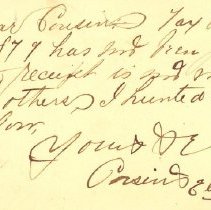 Cousin Tax
1879 has not been
receipt is not
others I hunted
for,
Yours &
Cousin